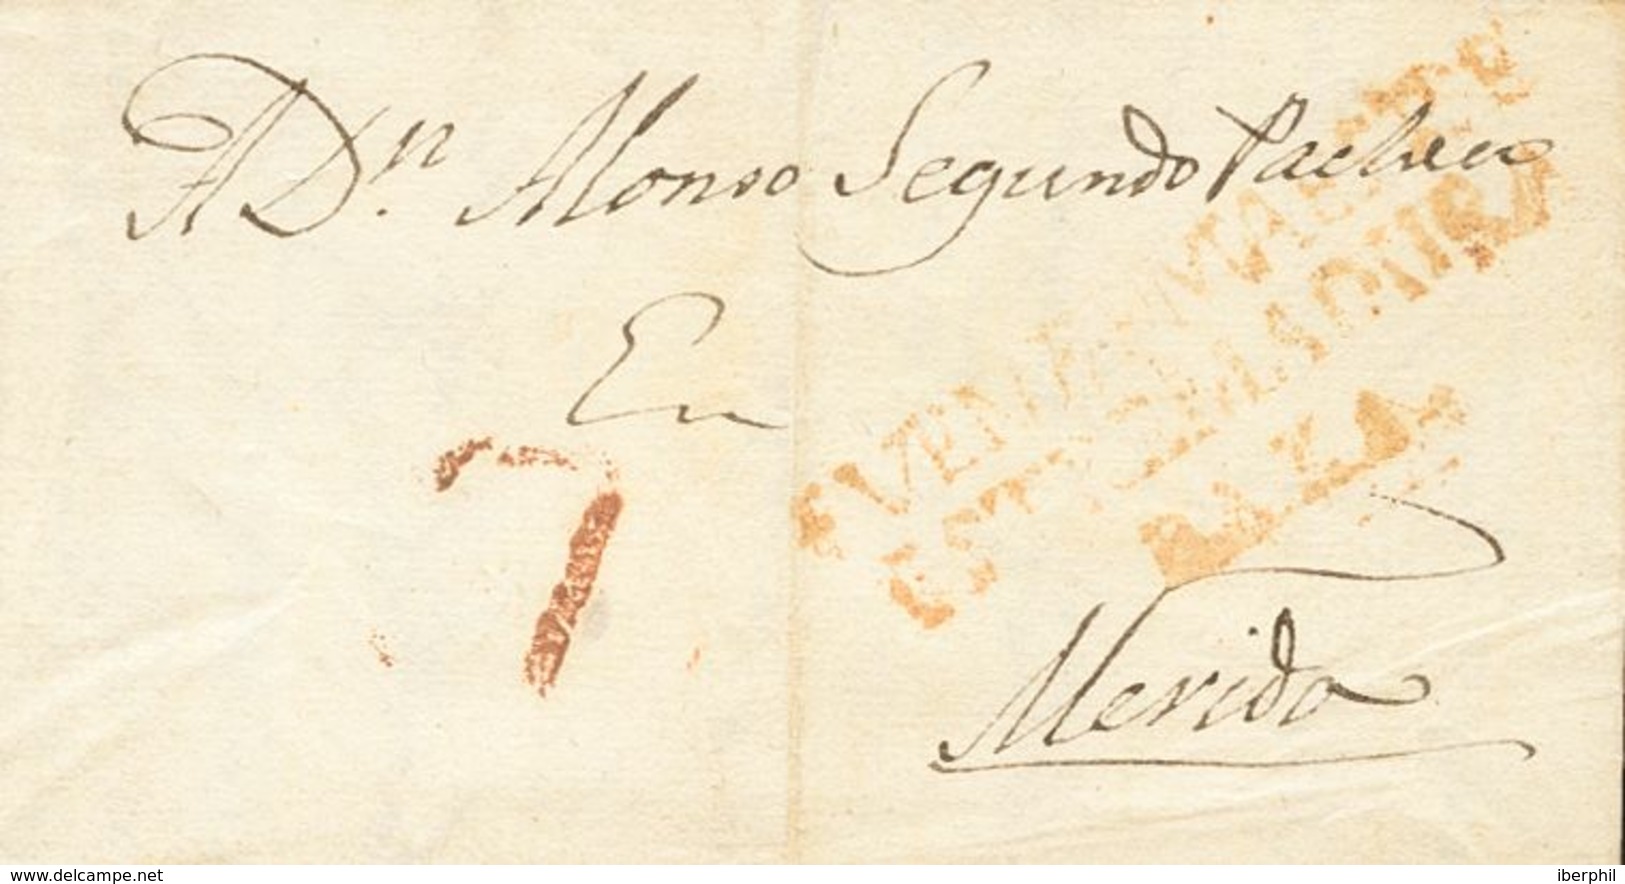 A Dn. Alonso Segundo Pacheco
En
7
FUENTE
BAXA
Merida
www.delcampe.net
iberphil